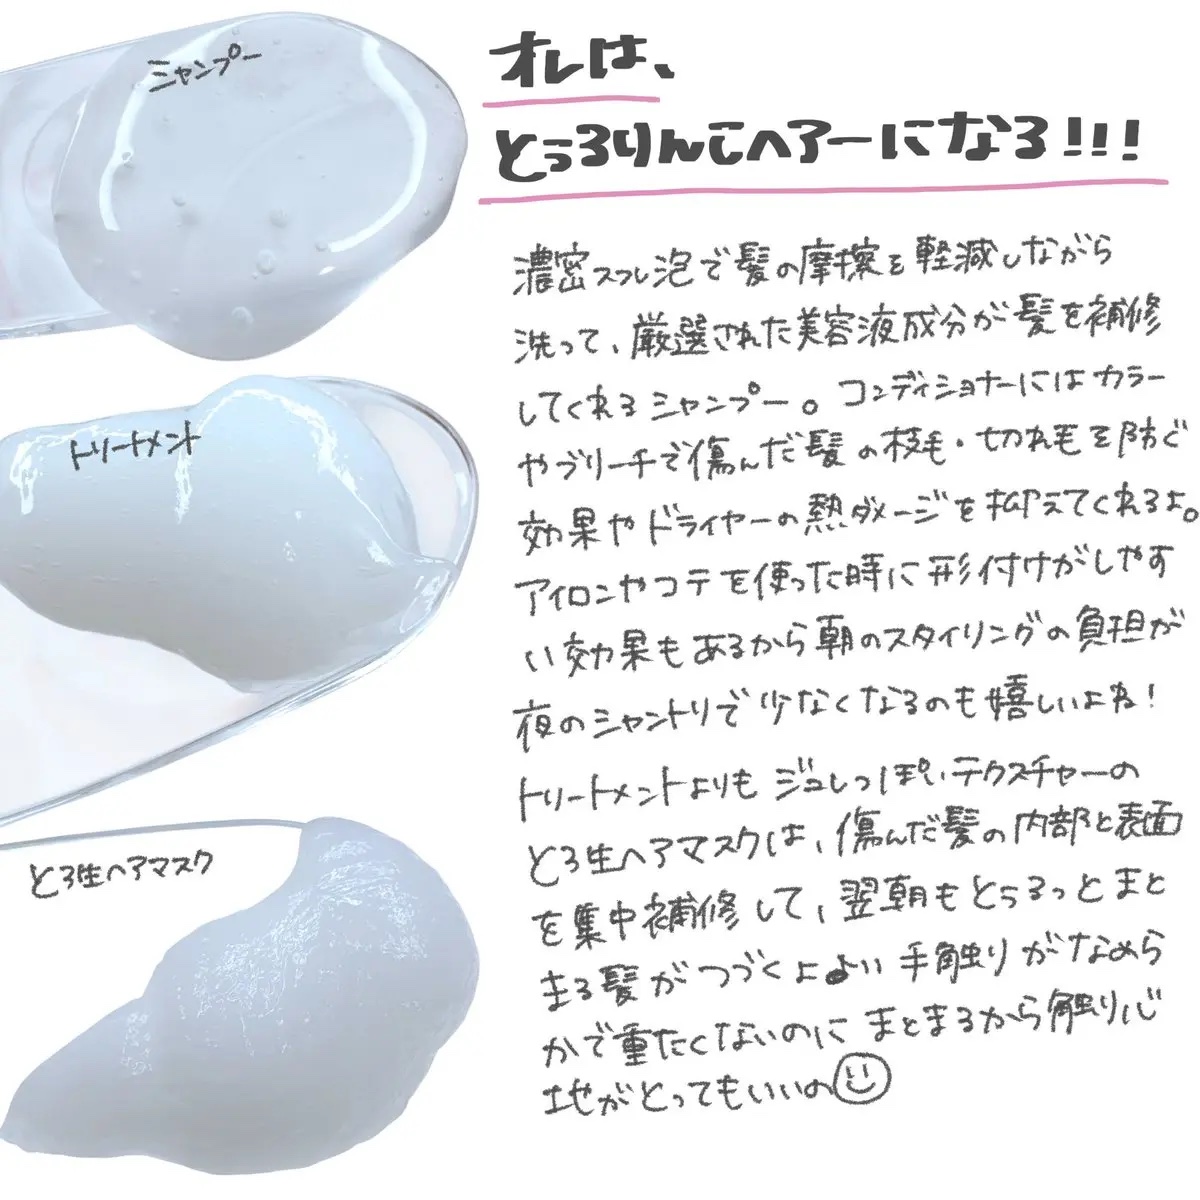 シャンプー
トリートメント
とろ生ヘアマスク
オレは、
とぅろりんこヘアーになる!!!
濃密スフレ泡で髪の摩擦を軽減しながら
洗って、厳選された美容液成分が髪を補修
してくれるシャンプー。コンディショナーにはカラー
やブリーチで傷んだ髪の枝毛・切れ毛を防ぐ
効果やドライヤーの熱ダメージを抑えてくれるよ。
アイロンやコテを使った時に形付けがしやす
い効果もあるから朝のスタイリングの負担が
夜のシャントリで少なくなるのも嬉しいよね!
トリートメントよりもジュレっぽいテクスチャーの
とろ生ヘアマスクは、傷んだ髪の内部と表面
を集中補修して、翌朝もとぅるっとまと
まる髪がつづくよよい手触りがなめら
かで重たくないのにまとまるから触り心
地がとってもいいの